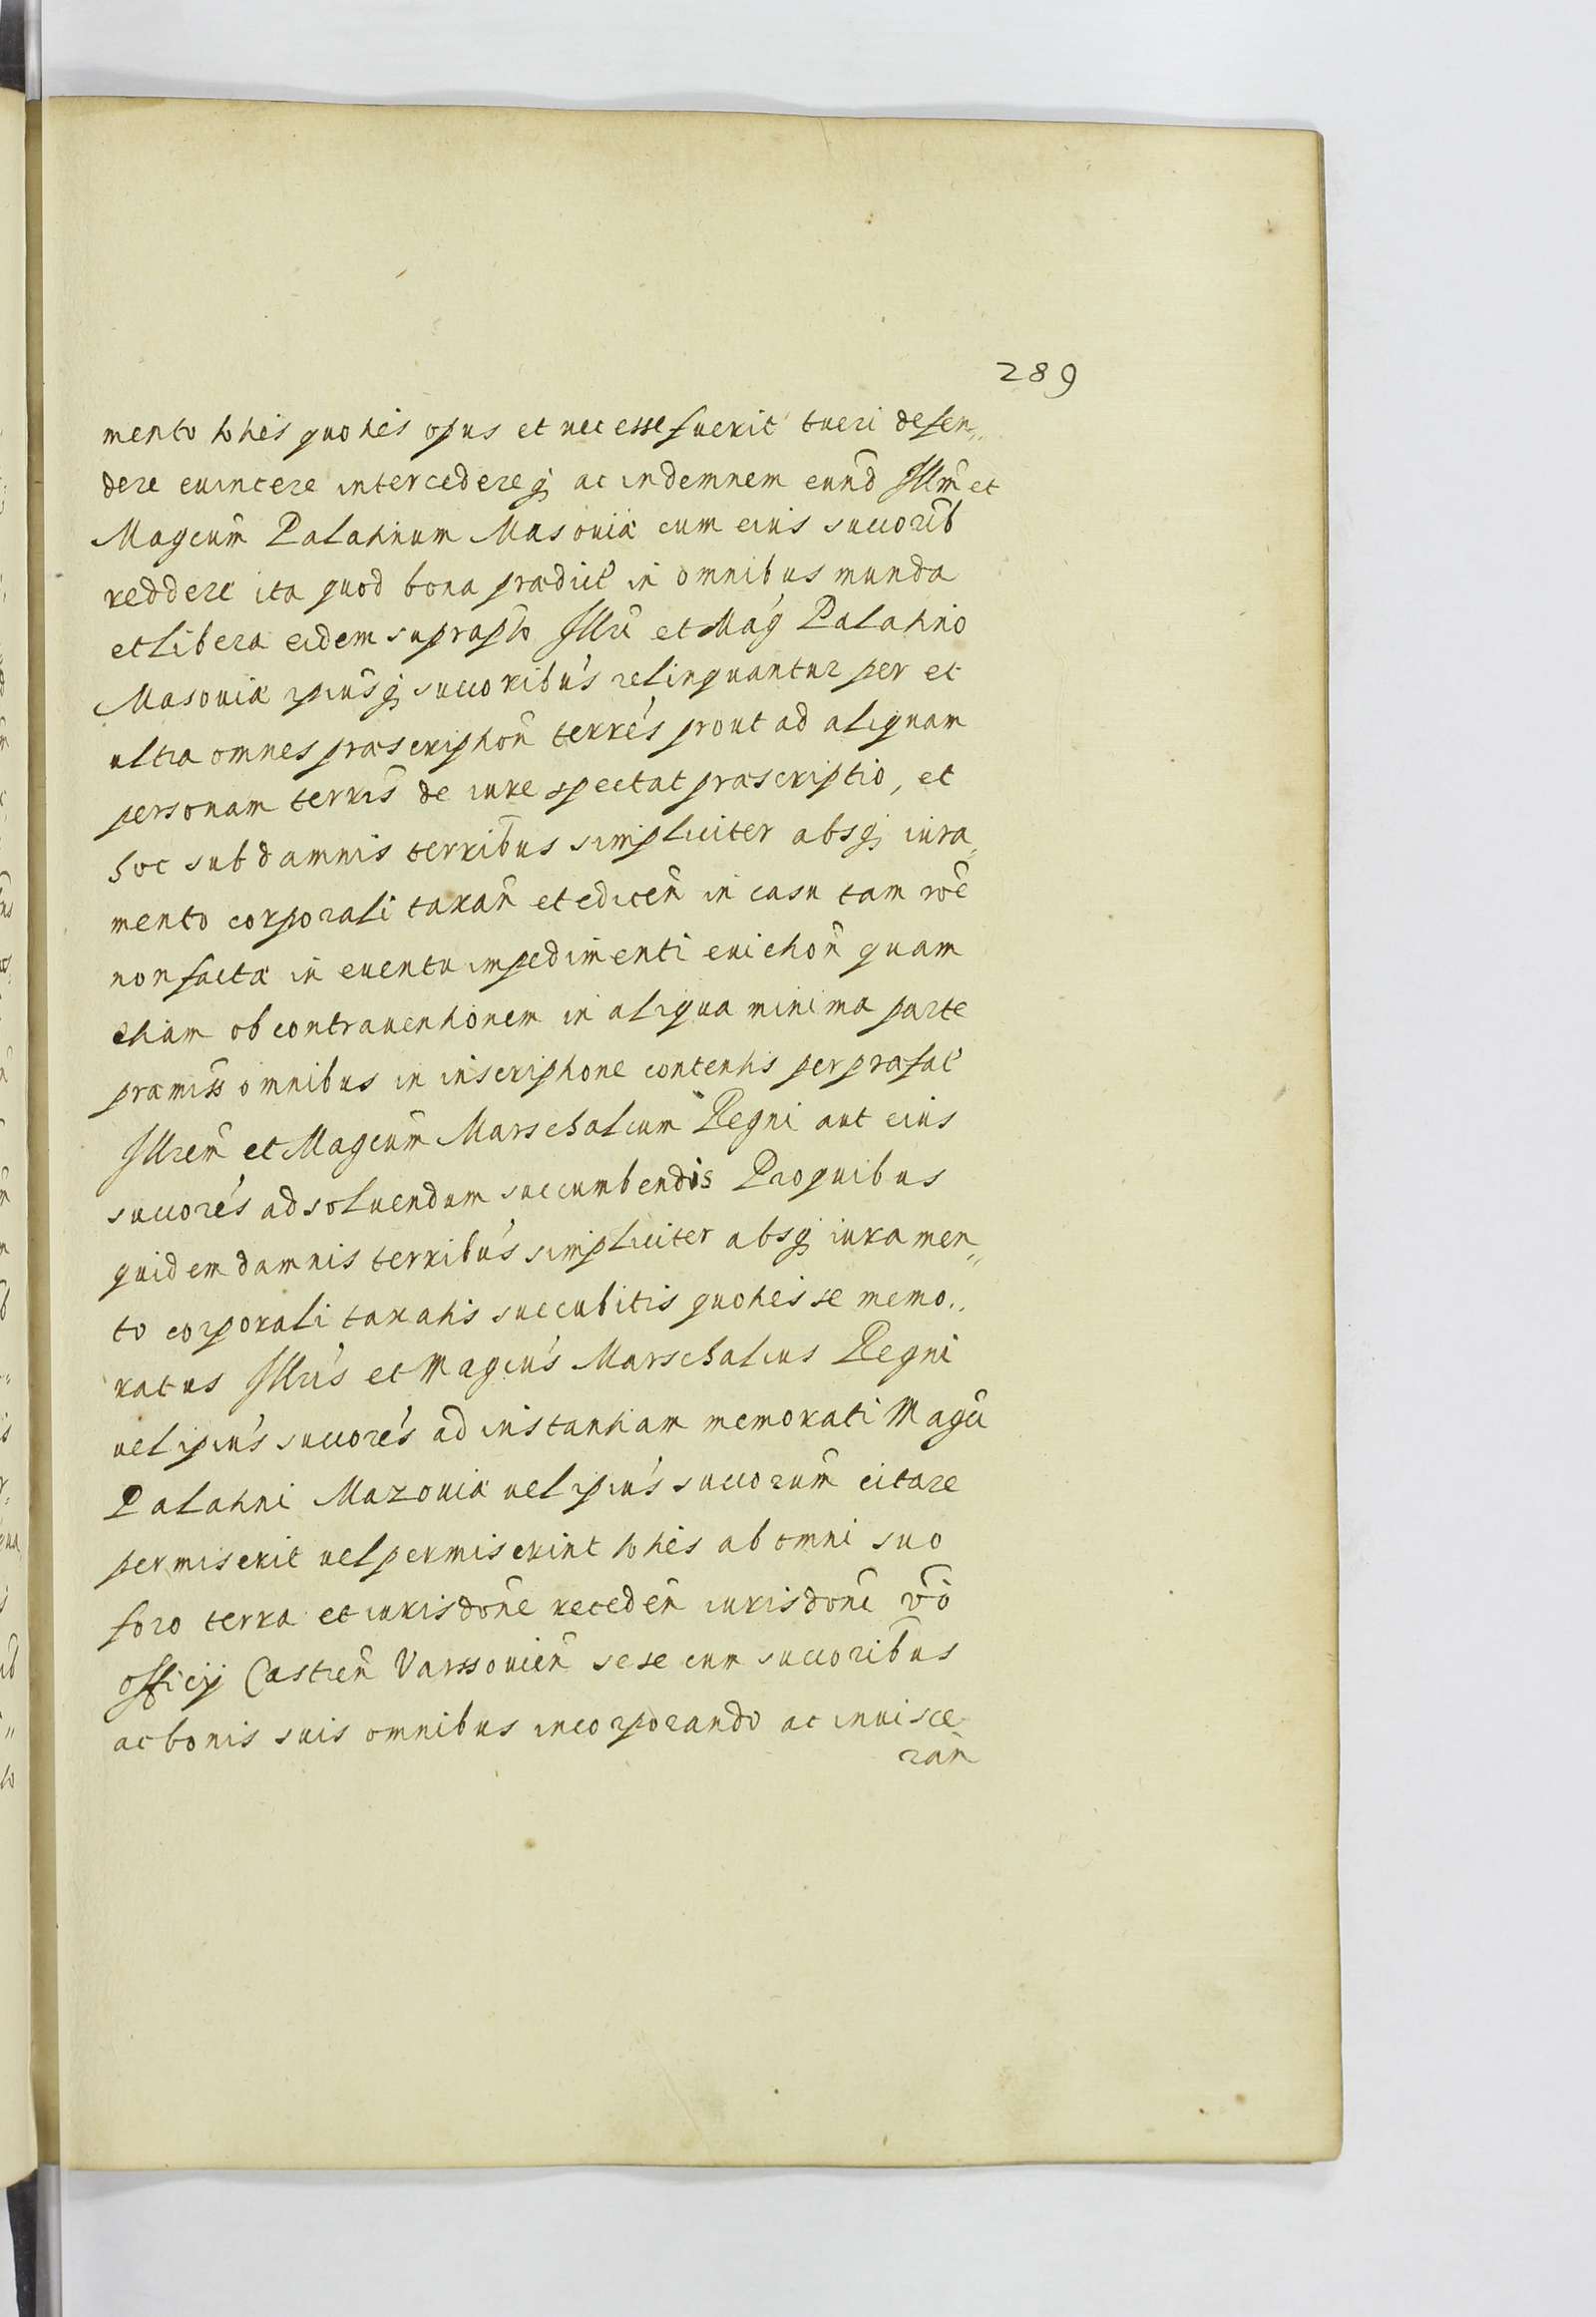 289
mento toties quoties opus et necesse fuerit tueri defen„
dere euincere intercedereq́ ac indemnem eund̃ Illm̃ et
Magcum̃ Palatinum Masouiæ cum eius succorib̃
reddere ita quod bona prædict̃ in omnibus munda
et libera eidem supraptõ Illrĩ et Mag̃ Palatino
Masouiæ ipiusq́ succoribus relinquantur per et
ultra omnes præscription̄ terrés prout ad aliquam
personam terris̃ de iure spectat præscriptio, et
hoc sub damnis terribus̃ simpliciter absq́ iura„
mento corporali taxan̄ et edicen̄ in casu tam roe̅
non factæ in euentu impedimenti euiction̄ quam
etiam ob contrauentionem in aliqua minima parte
præmiss̃ omnibus in inscriptione contentis per præfat̃
Illrem̃ et Magcum̃ Marschalcum Regni aut eius
succorés ad soluendum succumbendis Pro quibus
quidem damnis terribús simpliciter absq́ iuramen„
to corporali taxatis succubitis quoties se memo„
ratus Illris̃ et Magcus̃ Marschalcus Regni
uel ipius̃ succorés ad instantiam memorati Magcĩ
Palatini Mazouiæ uel ipius̃ succorum̃ citare
permiserit uel permiserint toties ab omni suo
foro terra et iurisdone̅ receden̄ iurisdoni̅ vo̅
officij Castren̄ Varssouien̄ sese cum succoribus̃
ac bonis suis omnibus incorporando ac inuisce„
ran̄